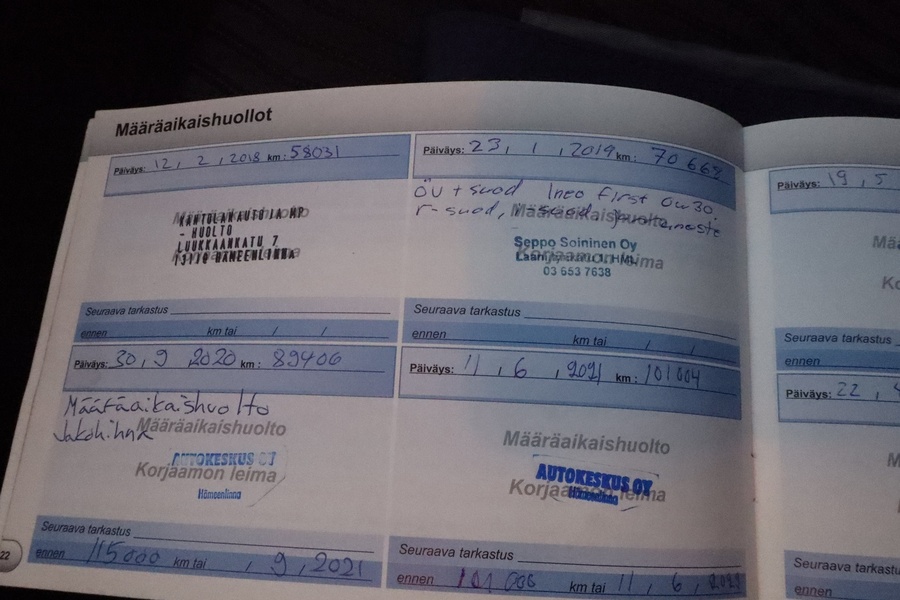 Määräaikaishuollot
Päiväys: 12, 2, 2018 km: 58031
KANTOLAN AUTO JA MP
- HUOLTO
LUUKKAANKATU 7
13110 HÄMEENLINNA
Seuraava tarkastus
ennen km tai / /
Päiväys: 23, 1, 2019 km: 70 668
ÖV + suod Ineo First 0w30.
r-suod,
Määräaikaishuolto
Seppo Soininen Oy
Korjaamon leima
03 653 7638
Seuraava tarkastus
ennen km tai / /
Päiväys: 30, 9 2020 km: 89406
Määräaikaishuolto
Jakohihna
Määräaikaishuolto
AUTOKESKUS OY
Korjaamon leima
Hämeenlinna
Seuraava tarkastus
ennen 115000 km tai , 9, 2021
Päiväys: 11, 6, 2021 km: 101004
Määräaikaishuolto
AUTOKESKUS OY
Korjaamon leima
Hämeenlinna
Seuraava tarkastus
ennen km tai 11, 6,
22
Päiväys: 19, 5
Seuraava tarkastus
ennen
Päiväys: 22,
Seuraava tarkastus
ennen